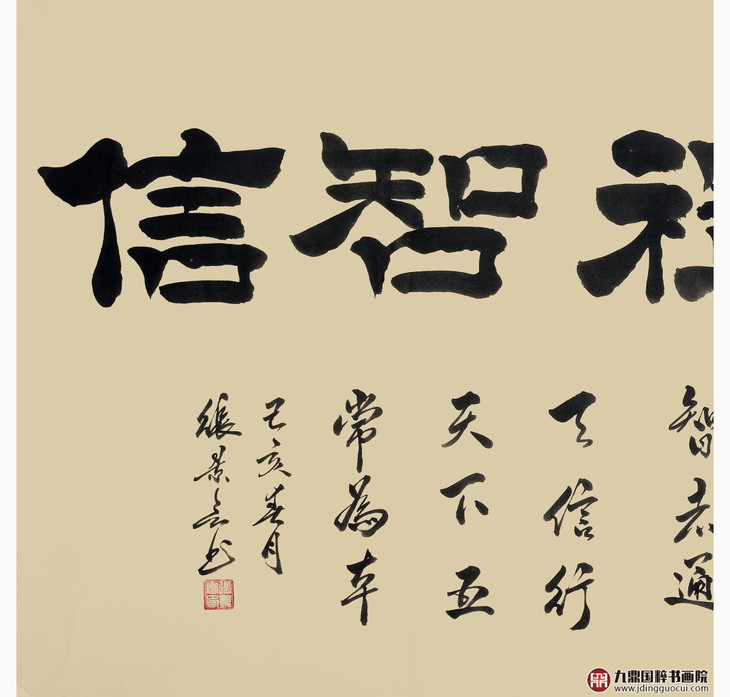 智信
智者通
天信行
天下五
常為本
己亥春月
張景
九鼎国粹书画院
www.jdingguocui.com